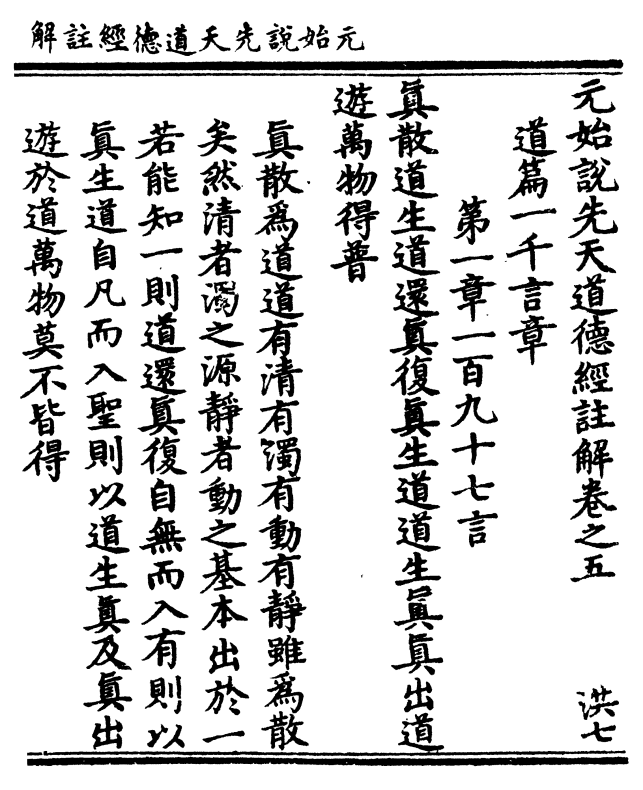 元始說先天道德經註解
元始說先天道德經註解卷之五 洪七
道篇一千言章
第一章一百九十七言
眞散道生道還眞復眞生道道生眞眞出道
遊萬物得普
眞散爲道道有清有濁有動有靜雖爲散
矣然清者濁之源靜者動之基本出於一
若能知一則道還眞復自無而入有則以
眞生道自凡而入聖則以道生眞及眞出
遊於道萬物莫不皆得